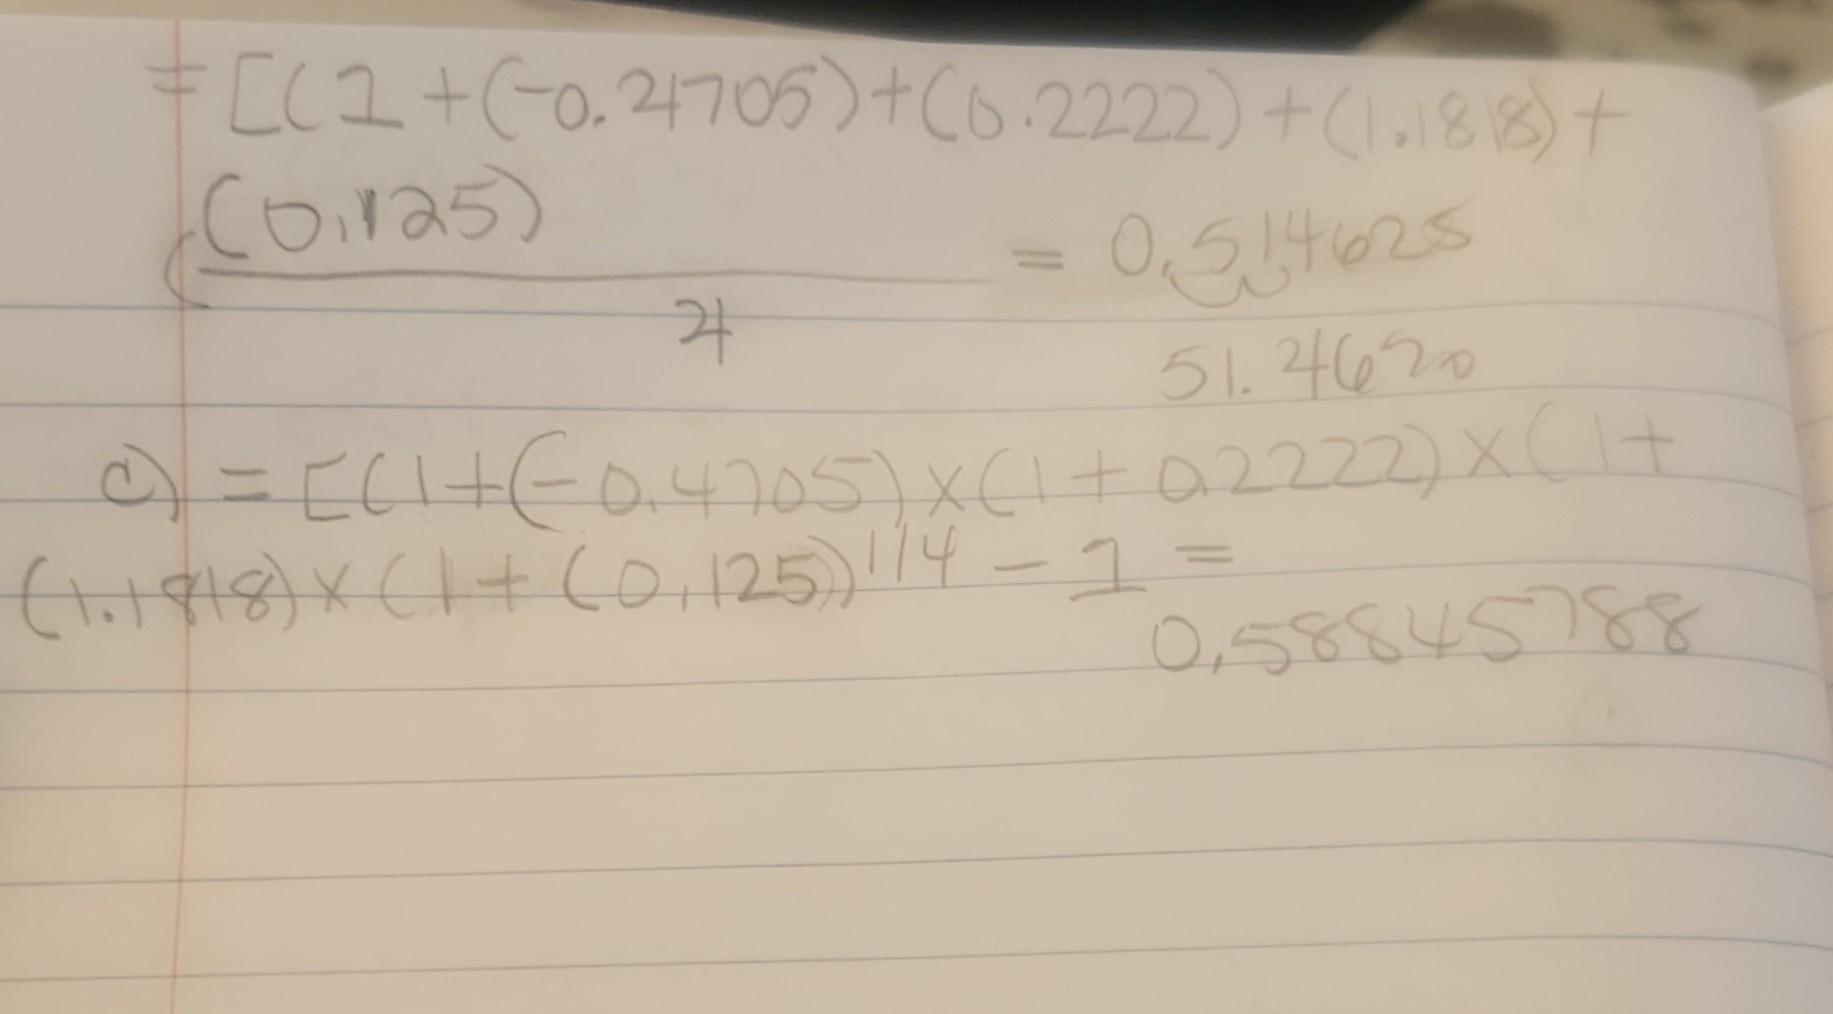 = [(1+(-0.4705)+(0.2222)+(1.1818)+
(0.125)
= 0.514625
4
51.4620
c) = [(1+(-0.4705)x(1+0.2222)x(1+
(1.1818)x(1+(0.125))1/4 - 1 =
0.58845788